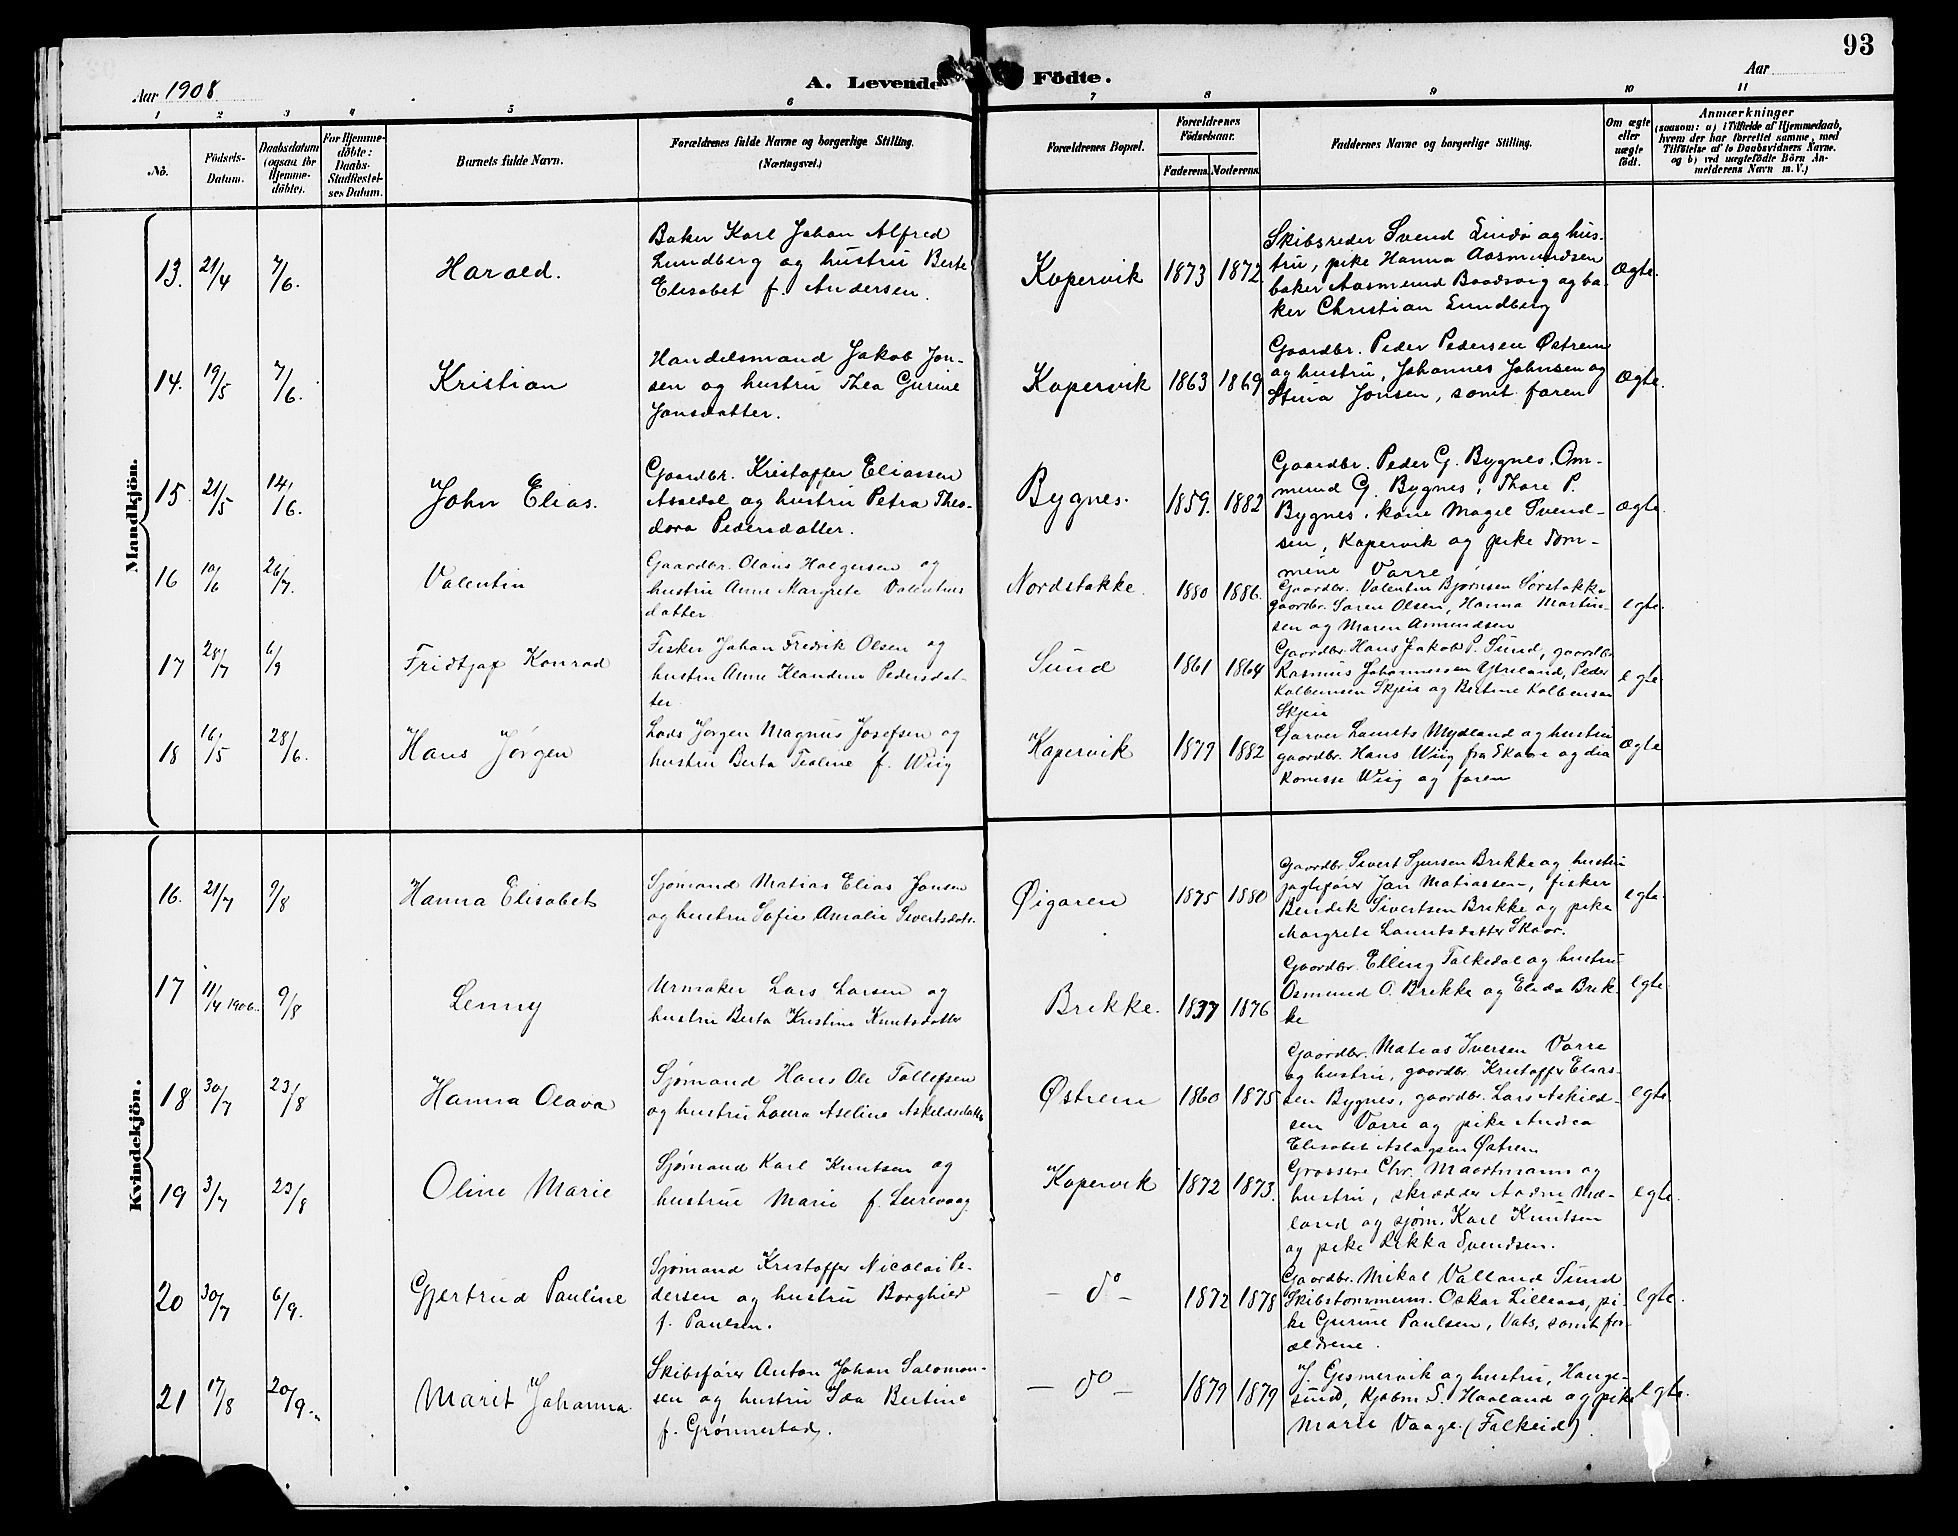 93
Aar 1908
A. Levende Födte.
Aar
1 2 3 4 5 6 7 8 9 10 11
No.
Födsels-
Datum.
Daabsdatum
(ogsaa for
Hjemme-
döbte).
For Hjemme-
döbte:
Daabs-
Stadfæstel-
ses Datum.
Barnets fulde Navn.
Forældrenes fulde Navne og borgerlige Stilling.
(Næringsvei.)
Forældrenes Bopæl.
Forældrenes
Födselsaar.
Faderens. Moderens.
Faddernes Navne og borgerlige Stilling.
Om ægte
eller
uægte
født.
Anmærkninger
(saasom: a) i Tilfælde af Hjemmedaab,
hvem der har forrettet samme, med
Tilföielse af to Daabsvidners Navne.
og b) ved uægtefödte Börn An-
melderens Navn m. V.)
Mandkjön.
13. 21/4 7/6. Harald.
Baker Karl Johan Alfred
Lundberg og hustru Berte
Elisabet f. Andersen.
Kopervik 1873 1872.
Skibsreder Svend Lindø og hus-
tru, pike Hanna Aasmundsen
baker Aasmund Baadsvig og ba-
ker Christian Lundberg
Ægte.
14. 19/5 7/6. Kristian
Handelsmand Jakob Jon-
sen og hustru Thea Gurine
Jonsdatter.
Kopervik 1863 1869
Gaardbr. Peder Pedersen Østrem
og hustru, Johannes Johnsen og
Stina Jonsen, samt faren
Ægte.
15. 21/5 14/6. John Elias.
Gaardbr. Kristoffer Eliassen
Assedal og hustru Petra Theo-
dora Pedersdatter.
Bygnes. 1859. 1882
Gaardbr. Peder G. Bygnes. Om-
mund G. Bygnes, Thore P.
Bygnes, kone Magel Svend-
sen, Kopervik og pike Tom-
mine Varre
ægte.
16 10/6 26/7. Valentin
Gaardbr. Olaus Holgersen og
hustru Anne Margrete Valentins
datter
Nordstokke. 1880 1886.
Gaardbr. Valentin Bjørnsen Sørstokke
gaardbr. Søren Olsen, Hanna Martin-
sen og Maren Asmundsen
egte.
17 28/7 6/9 Fridtjof Konrad
Fisker Johan Fredrik Olsen og
hustru Anne Klandine Pedersdat-
ter
Sund 1861 1864
Gaardbr. Hans Jakob P. Sund, gaardbr
Rasmus Johannessen Ytreland, Peder
Kolbeinsen Skjeie og Bertine Kolbeinsen
Skjeie
egte
18 16/5 28/6. Hans Jørgen
Lods Jørgen Magnus Josefsen og
hustru Berta Teoline f. Wiig
Kopervik 1879 1882
Garver Laurits Mydland og hustru
gaardbr. Hans Wiig fra Skaare og dia
konisse Wiig og faren
Ægte
Kvindekjön.
16. 21/7 9/8 Hanna Elisabet
Sjømand Matias Elias Jonsen
og hustru Sofie Amalie Sivertsdatt.
Øigaren 1875 1880
Gaardbr. Sivert Sjursen Brekke og hustru
jagtefører Jan Matiassen, fisker
Bendik Sivertsen Brekke og pike
Margrete Lauritsdatter Skaar.
egte.
17 11/4 1906. 9/8 Lenny
Urmaker Lars Larsen og
hustru Berta Kristine Knutsdatter
Brekke. 1837 1876
Gaardbr. Elling Falkedal og hustru
Osmund O. Brekke og Elida Brek-
ke
egte.
18 30/7 23/8 Hanna Olava
Sjømand Hans Ole Tollefsen
og hustru Laura Aseline Askildsdatter
Østrem 1860 1875
Gaardbr. Matias Iversen Varre
og hustru, gaardbr. Kristoffer Elias-
sen Bygnes, gaardbr. Lars Askild-
sen Varre og pike Andrea
Elisabet Aslagsen Østrem
egte
19 3/7 23/8 Oline Marie
Sjømand Karl Knutsen og
hustrue Marie f. Leirvaag.
Kopervik 1872 1873.
Grossere Chr. Maartmann og
hustru, skrædder Aadne Mæ-
land og sjøm. Karl Knutsen
og pike Rikka Svendsen.
egte.
20 30/7 6/9. Gjertrud Pauline
Sjømand Kristoffer Nicolai Pe-
dersen og hustru Borghild
f. Paulsen.
– do – 1872 1878
Gaardbr. Mikal Valland Sund
Skibstømmerm. Oskar Lilleaas, pi-
ke Gurine Paulsen, Vats, samt for-
ældrene.
egte.
21 17/8 20/9. Marit Johanna.
Skibsfører Anton Johan Salomon-
sen og hustru Ida Bertine
f. Grønnestad.
– do – 1879 1879
J. Gismervik og hustru, Hauge-
sund, Kjøbm S. Haaland og pike
Marie Vaage. (Falkeid).
egte.